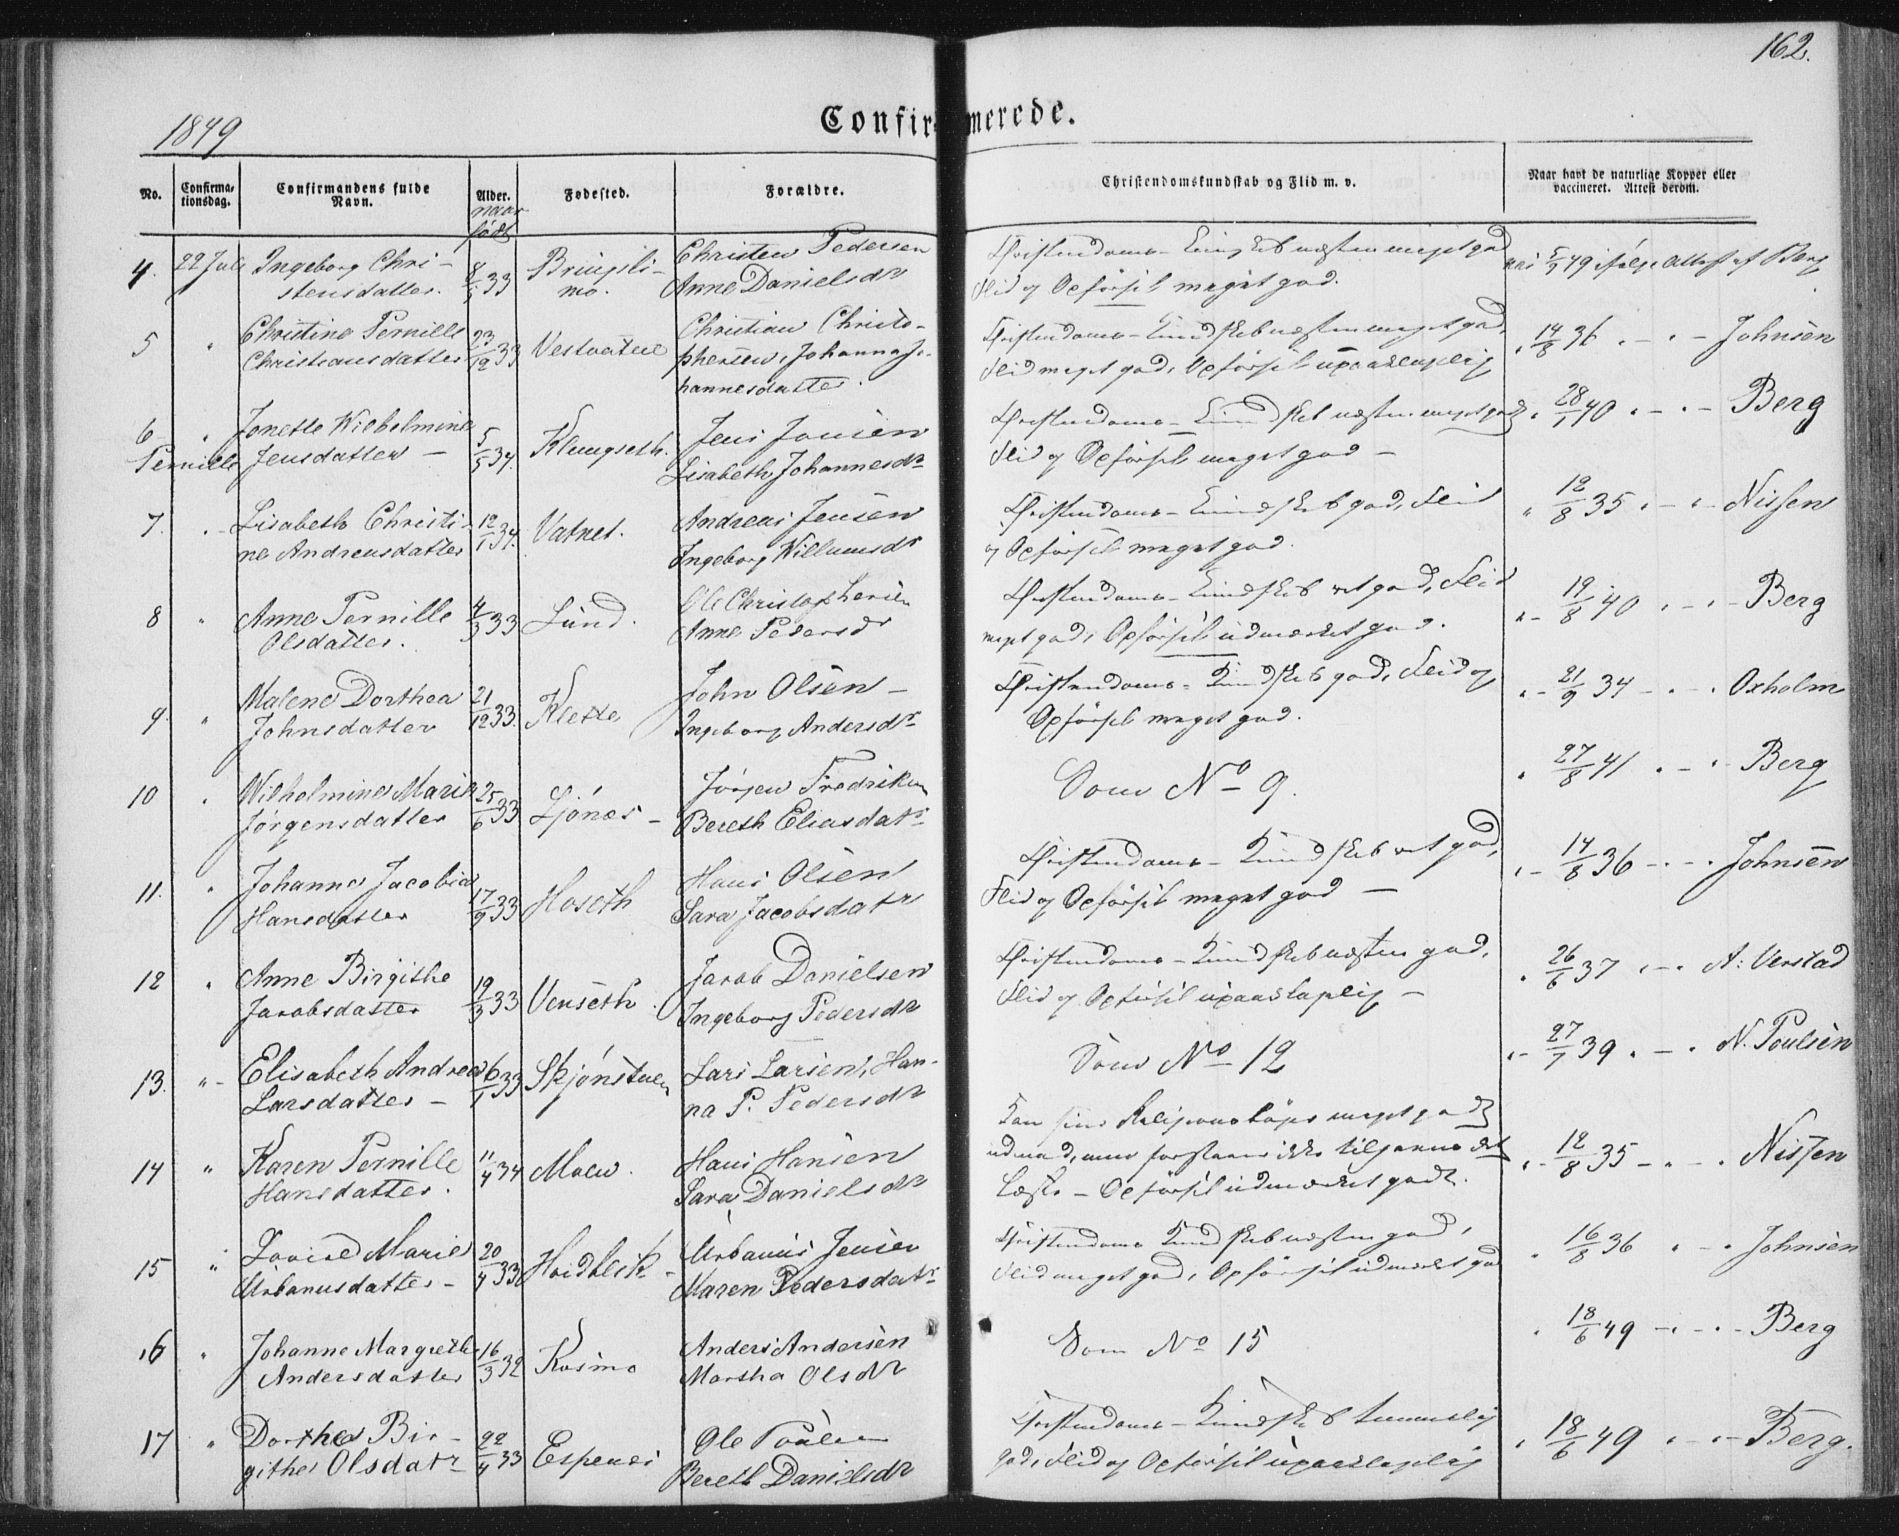 162.
1849
Confirmerede.
No.
Confirma-
tionsdag.
Confirmandens fulde
Navn.
Alder.
naar
født
Fødested.
Forældre.
Christendomskundskab og Flid m. v.
Naar havt de naturlige Kopper eller
vaccineret. Attest derom.
4. 22 Juli Ingeborg Chri- 33 Christen Pedersen Christendoms-Kundskab næsten meget god
stensdatter. mo. Anne Danielsdr Flid og Opførsel meget god.
5/7 49 ifølge Attest af Berg
5 " Christine Pernille 23/12 33 Vestvatne Christian Christo- Christendoms-Kundskab næsten meget god,
Christiansdatter phersen, Johanna Jo- Flid meget god, Opførsel upaaklagelig
hannesdatter.
" 14/8 36 " - " - Johnsen
6 " Jonette Wilhelmine 5/5 34. Klungseth. Jens Jensen Christendoms-Kundskab næsten meget god
Pernille Jensdatter - Lisabeth Johannesdr Flid og Opførsel meget god -
" 28/1 40 " - " - Berg
7. " Lisabeth Christi- 12/1 34. Vatnet. Andreas Jensen Christendoms-Kundskab god, Flid
ne Andreasdatter Ingeborg Willumsdr og Opførsel meget god.
" 12/8 35 " - " - Nissen
8 " Anne Pernille 4/3 33 Lund. Ole Christophersen Christendoms-Kundskab ret god, Flid
Olsdatter. Anne Pedersdr meget god, Opførsel udmærket god.
" - 19/8 40 " - " - Berg
9. " Malene Dorthea 21/12 33. Klette John Olsen - Christendoms-Kundskab god, Flid og
Johnsdatter Ingeborg Andersdr Opførsel meget god.
" - 21/9 34 - " - " Oxholm
10 " Wilhelmine Marie 25/6 33 Ljønes - Jørgen Fredriksen Som No 9.
Jørgensdatter Bereth Eliasdatr
" 27/8 41 " - " - Berg
11. " Johanne Jacobia 17/9 33 Hoseth Hans Olsen Christendoms-Kundskab ret god,
Hansdatter Sara Jacobsdatr Flid og Opførsel meget god -
" - 14/8 36 - " - " Johnsen
12 " Anne Birgithe 19/3 33 Venseth. Jacob Danielsen Christendoms-Kundskab næsten god,
Jacobsdatter Ingeborg Pedersdr Flid og Opførsel upaaklagelig -
" 26/6 37 " - " A: Verstad
13. " - Elisabeth Andrea 6/1 33 Skjønstuen Lars Larsen, Han- Som No 12
Larsdatter - na P. Pedersdr
" - 27/7 39 " - " N. Poulsen
14 " Karen Pernille 11/4 34 Moen. Hans Hansen Kan sin Religionsbog meget godt
Hansdatter. Sara Danielsdr udenad, men forstaaer ikke det
Læste - Opførsel udmærket godt.
" - 12/8 35 - " - " Nissen
15 " Lovise Marie 20/4 33 Urbanus Jensen Christendoms Kundskab næsten god,
Urbanusdatter - Maren Pedersdatr Flid meget god, Opførsel udmærket god
" 16/8 36 " - " Johnsen
16 " Johanne Margrethe 16/3 32 Kosmo Anders Andersen Som No 15
Andersdatter Martha Olsdr
" 18/6 49 - " - " - Berg
17 " Dorthea Bir- 22/4 33 Espenes Ole Poulsen Christendoms-Kundskab temmelig
githe Olsdatr Bereth Danielsdr god, Flid og Opførsel upaaklagelig
" 18/6 49 " - " - Berg.